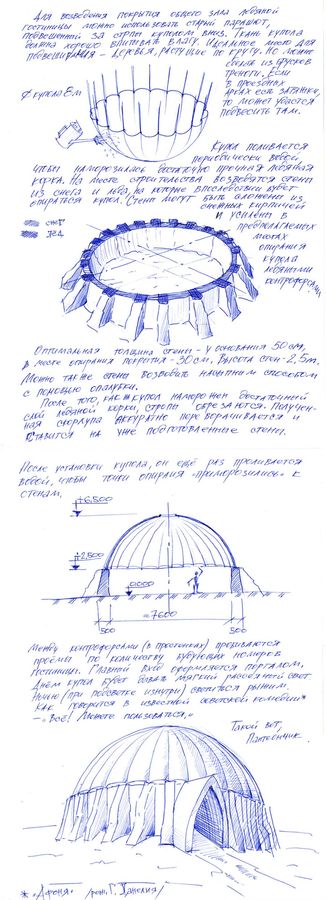 Для возведения покрытия общего зала ледяной
гостиницы можно использовать старый парашют,
подвешенный за стропы куполом вниз. Ткань купола
должна хорошо впитывать влагу. Идеальное место для
подвешивания - деревья, растущие по кругу. Но можно
из брусков
треноги. Если
в проезжих
арках есть затяжки,
то может удастся
подвесить там.
⌀ купола 8 м
Купол поливается
периодически водой,
чтобы наморозилась достаточно прочная ледяная
корка. На месте строительства возводятся стены
из снега и льда, на которые впоследствии будет
опираться купол. Стены могут быть сложены из
снежных кирпичей
и усилены в
предполагаемых
местах
опирания
купола
ледяными
контрфорсами.
снег
лёд
Оптимальная толщина стены - у основания 50 см,
в месте опирания покрытия - 30 см. Высота стен - 2,5 м.
Можно также стены возводить насыпным способом
с помощью опалубки.
После того, как на купол наморожен достаточный
слой ледяной корки, стропы обрезаются. Получен-
ная скорлупа аккуратно переворачивается и
ставится на уже подготовленные стены.
После установки купола, он ещё раз проливается
водой, чтобы точки опирания "приморозились" к
стенам.
+6,500
+2,500
0,000
≈7600
500
500
Между контрфорсами (в простенках) пробиваются
проёмы по количеству будующих номеров
гостиницы. Главный вход оформляется порталом.
Днём купол будет давать мягкий рассеяный свет
Ночью (при подсветке изнутри) светиться рыжим.
Как говорится в известной советской комедии*
- "Всё! Можете пользоваться."
Такой вот,
Пантеончик.
* "Афоня" /реж. Г. Данелия/